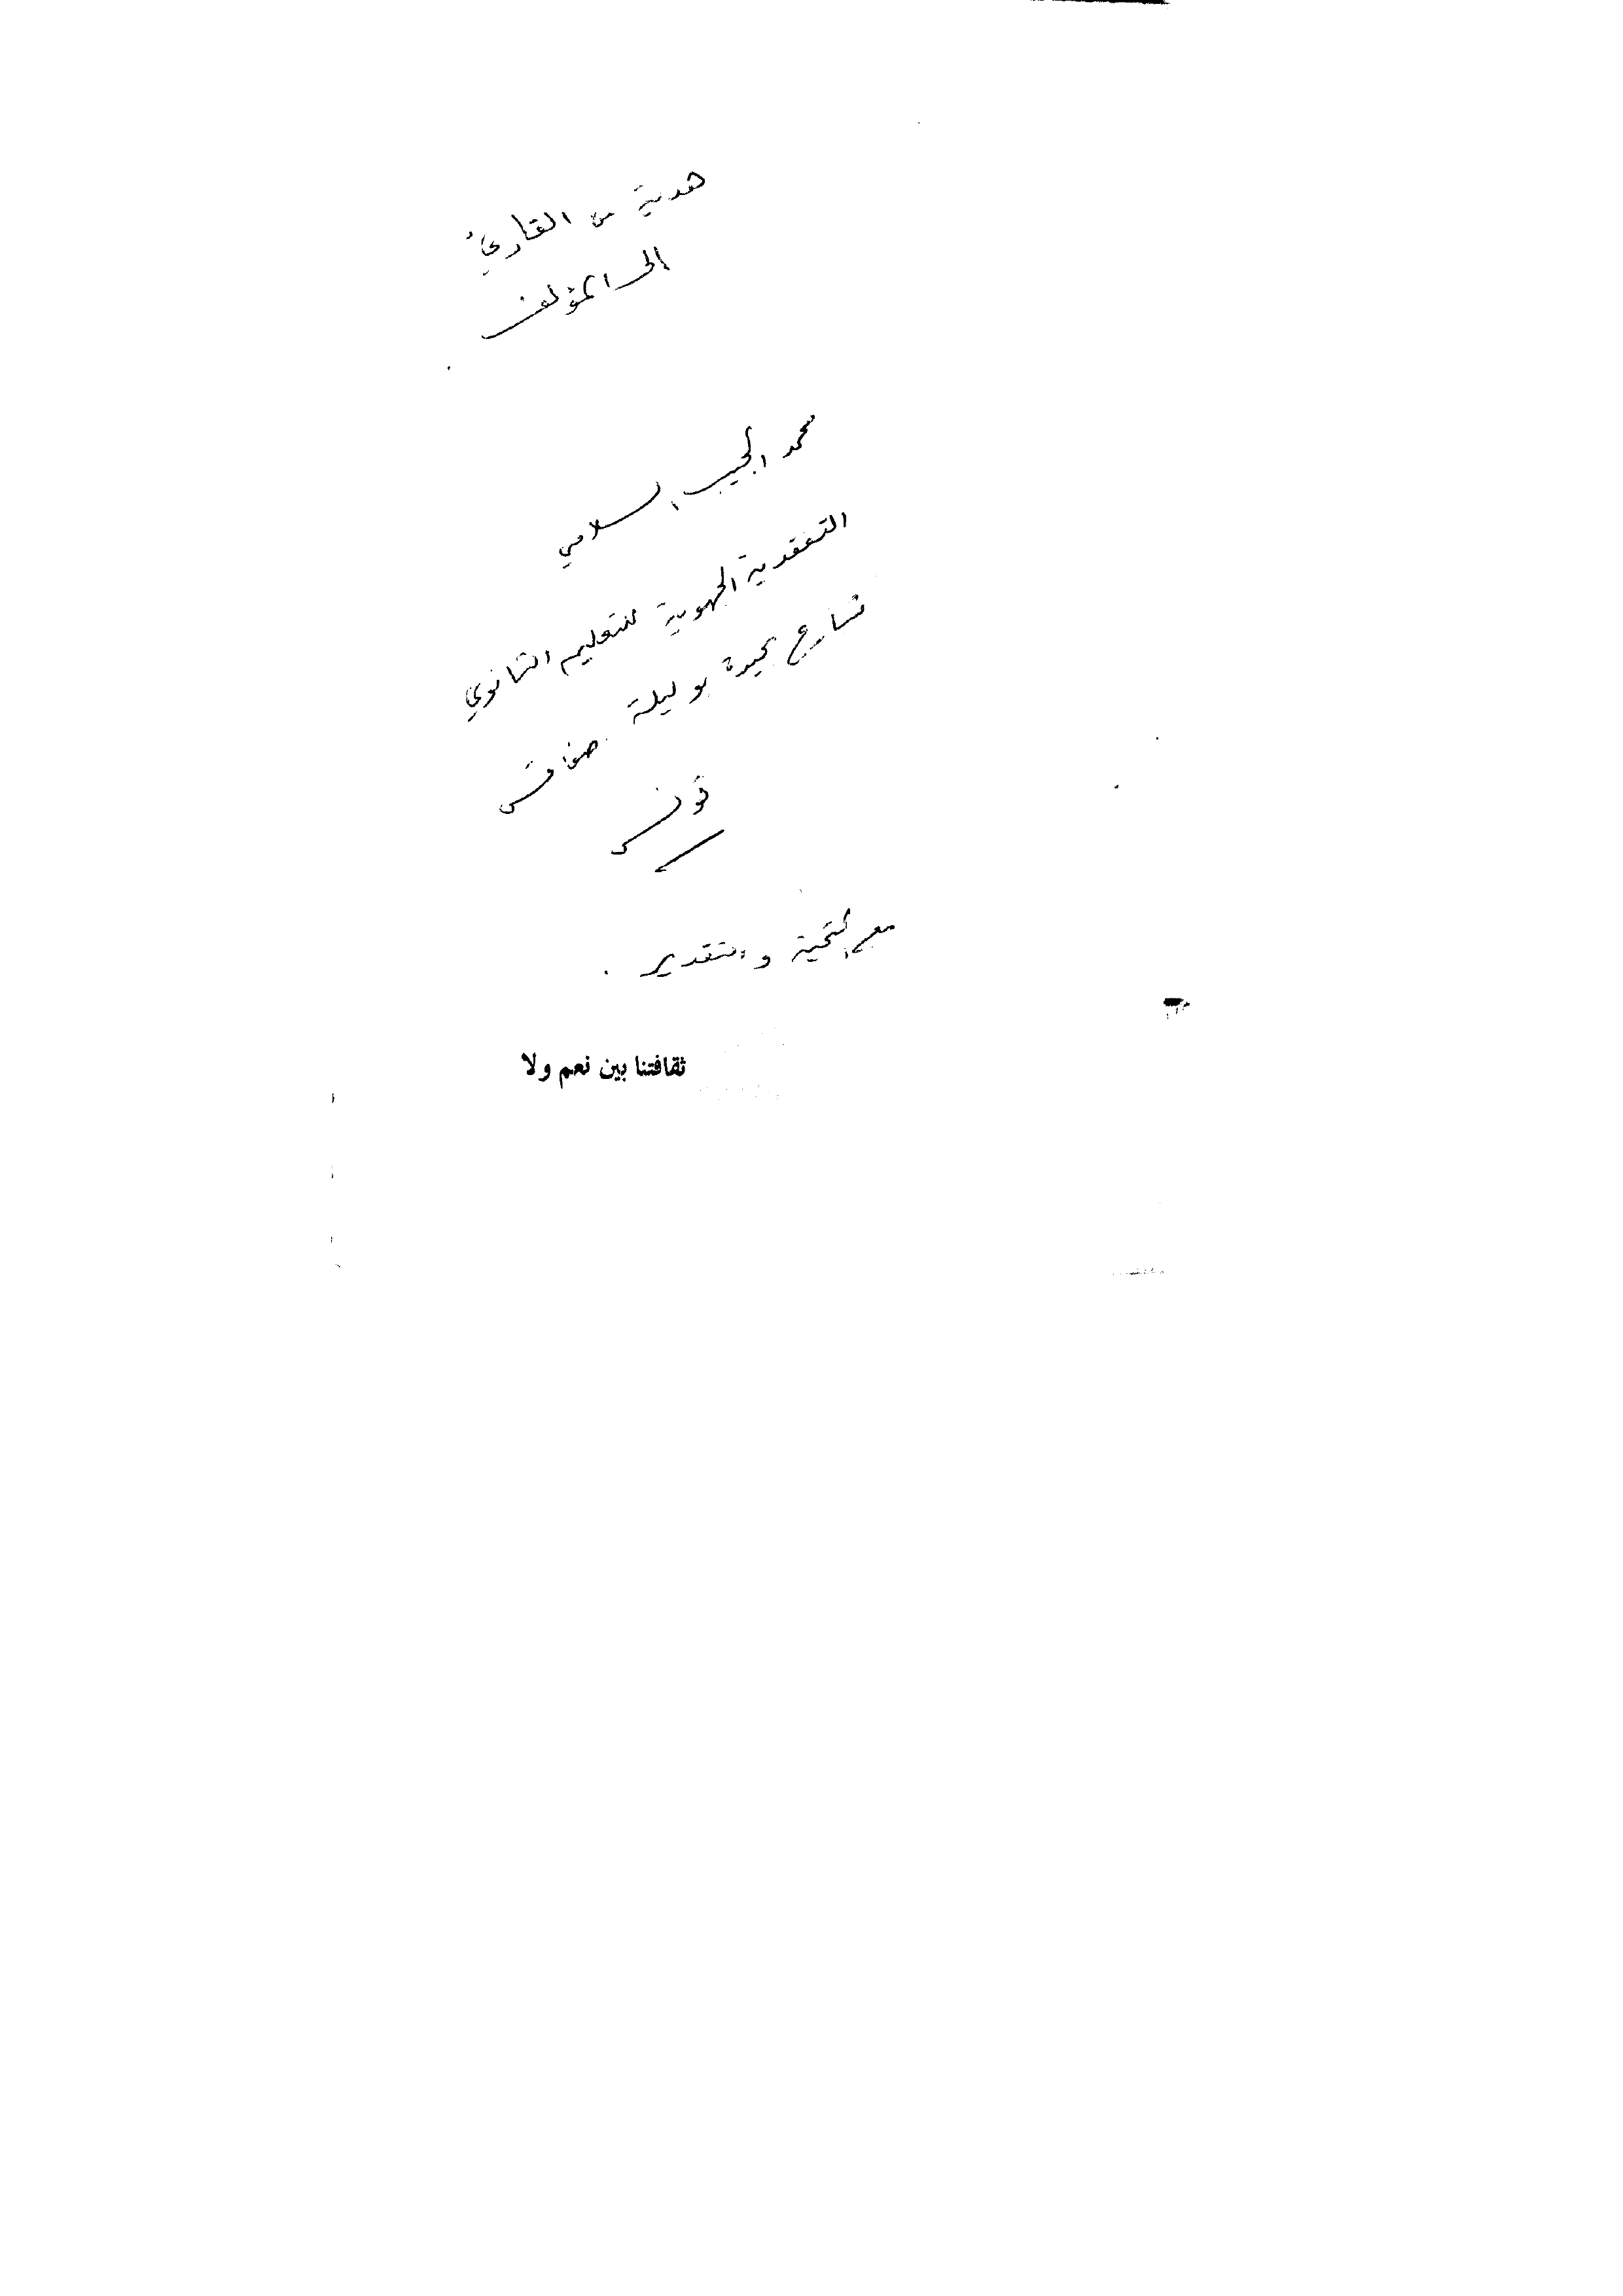 هدية من القارئ
الى المؤلف
محمد الحبيب السلامي
التفقدية الجهوية للتعليم الثانوي
شارع بو ليلة . صفاقس
تونس
مع التحية والتقدير .
ثقافتنا بين نعم ولا